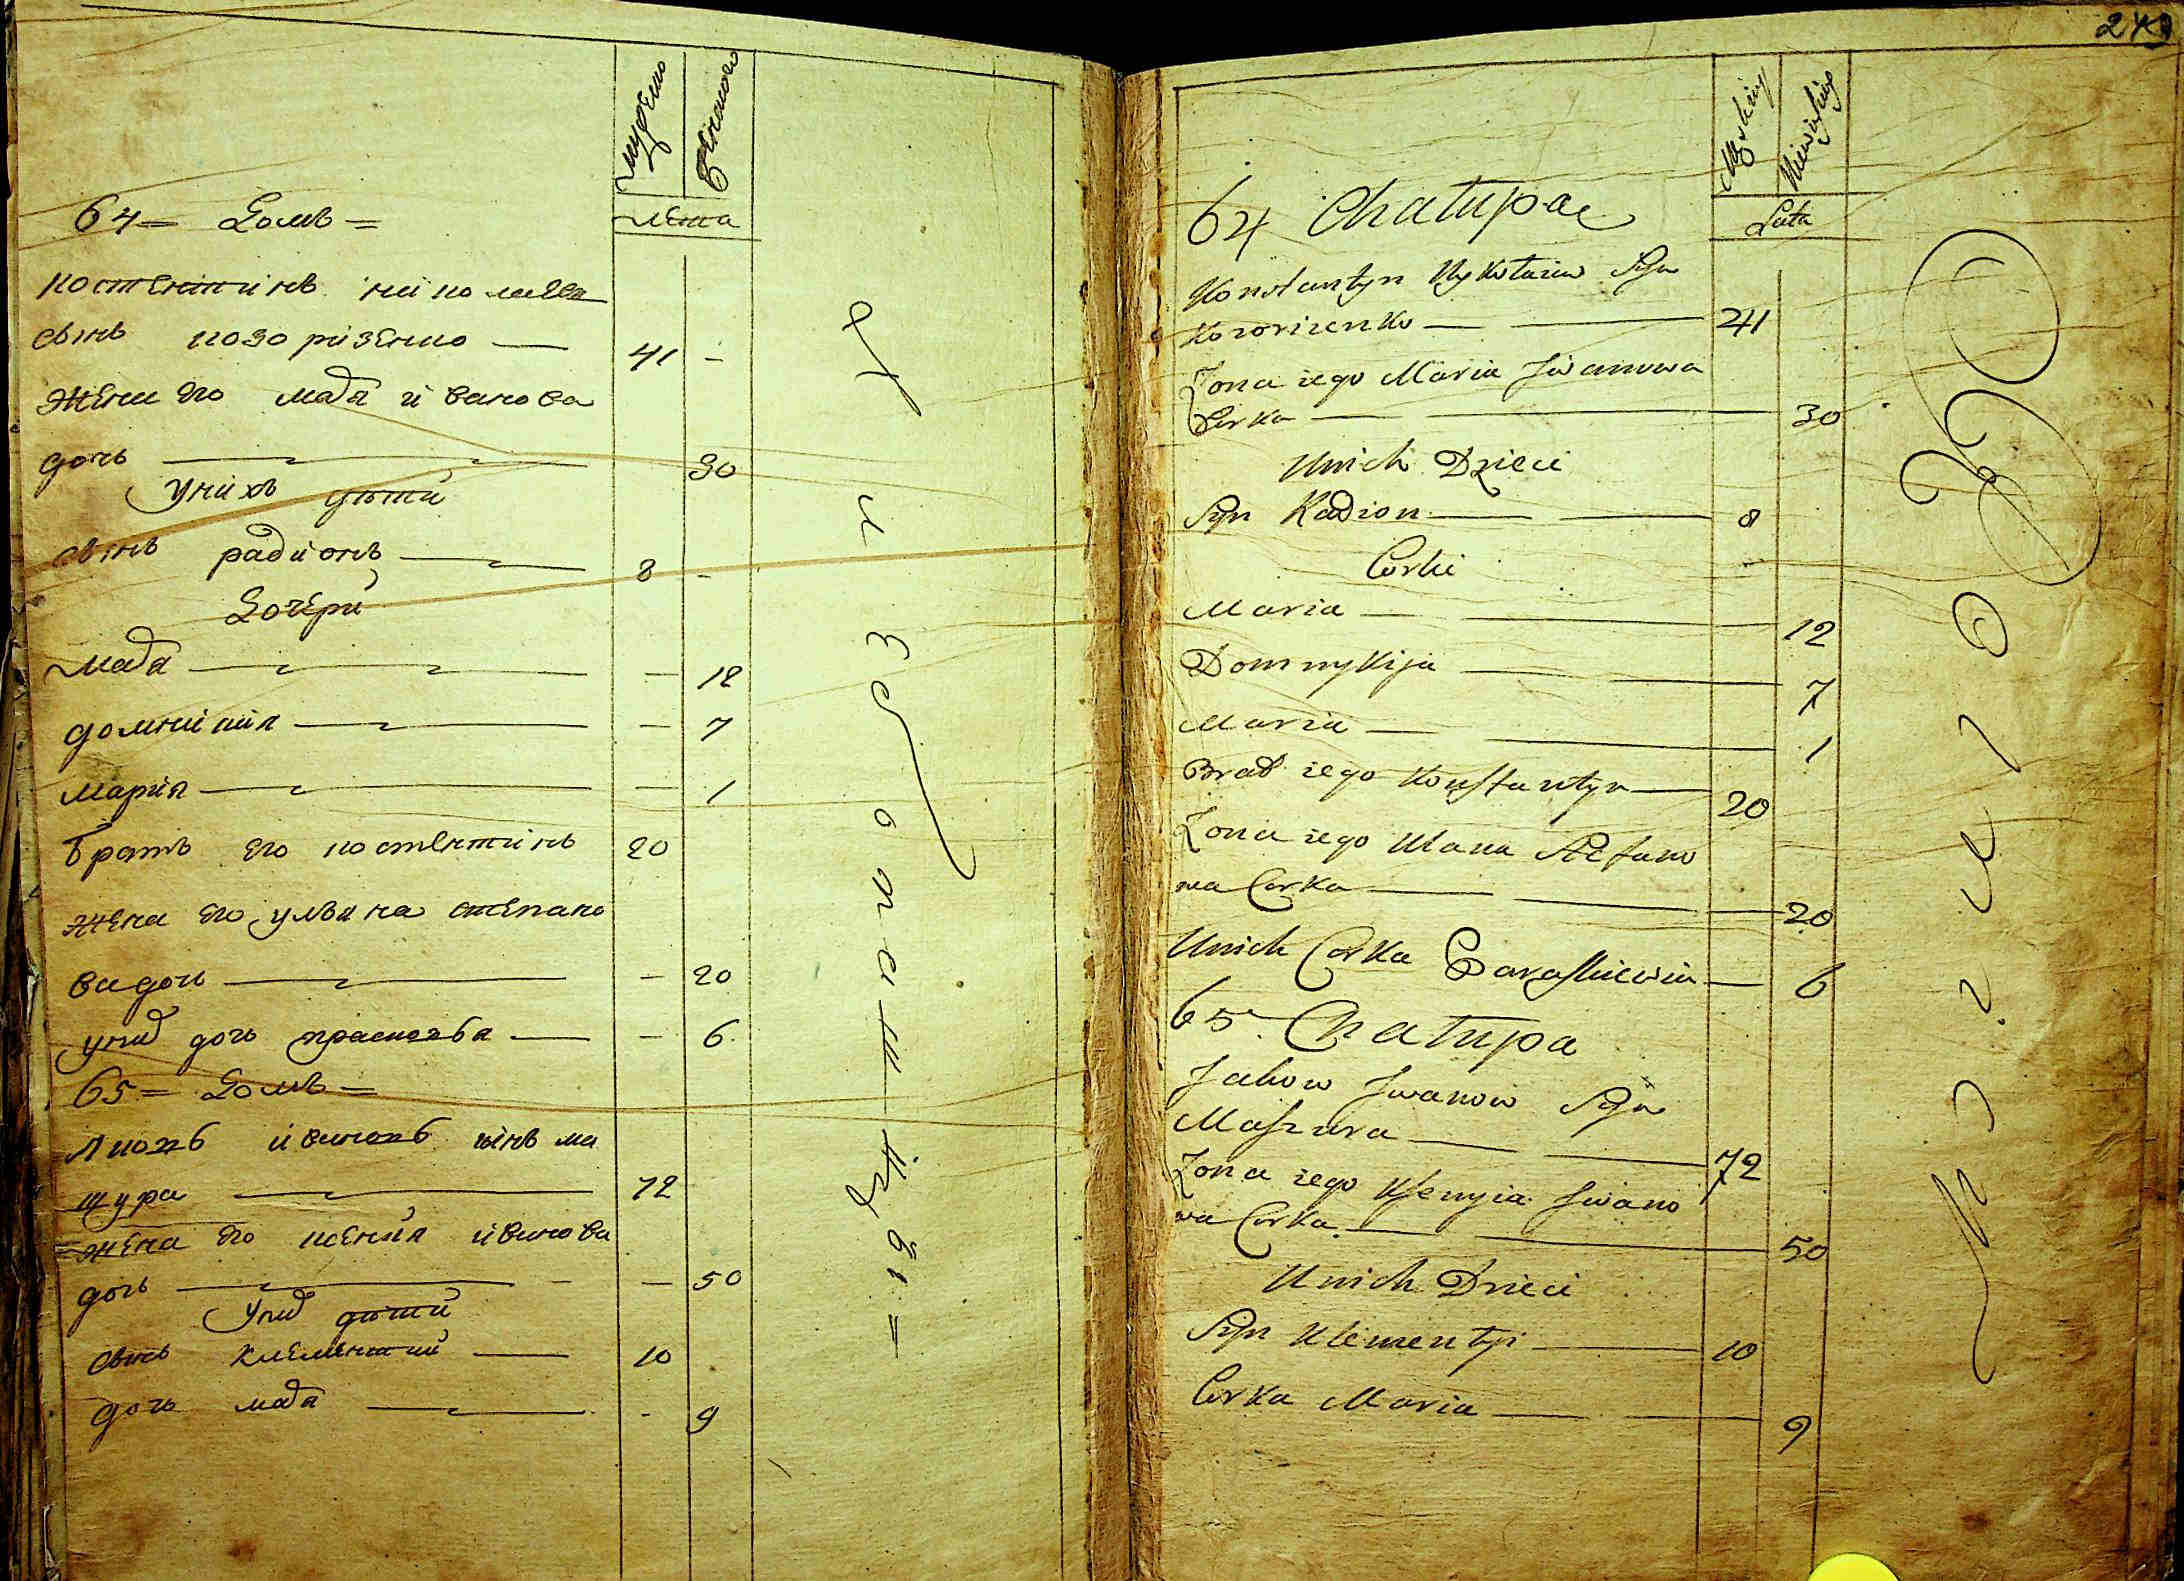 мужеско
женского
лета
64 = Домъ =
костентинъ николаевъ
сынъ козорізенко — 41 -
жена его маря иванова
дочь — 30
унихъ дѣти
сынъ радионъ — 8 -
Дочери
маря — - 12
домникия — - 7
мария — - 1
братъ его костентинъ 20
жена его ульяна степано
ва дочь — - 20
уних дочь прасковья — - 6
65 = Домъ =
яковъ ивановъ синъ ма
щура — 72
жена его ксения иванова
дочь — - 50
Уних дѣти
сынъ клементий — 10
дочь маря — - 9
243
Męskiey
Niewieskiey
Lata
64 Chałupa
Konstantyn Mykołaiow Syn
Kozorizenko — 41
Żona iego Maria Iwanowa
Corka — 30
Unich Dzieci
Syn Radion — 8
Corki
Maria — 12
Domnykija — 7
Maria — 1
Brat iego Konstantyn — 20
Żona iego Ulana Stefano
wa Corka — 20
Unich Corka Paraskiewia — 6
65 Chałupa
Jakow Iwanow Syn
Maszura — 72
Żona iego Ksenyia Iwano
wa Corka — 50
Unich Dzieci
Syn Klementyi — 10
Corka Maria — 9